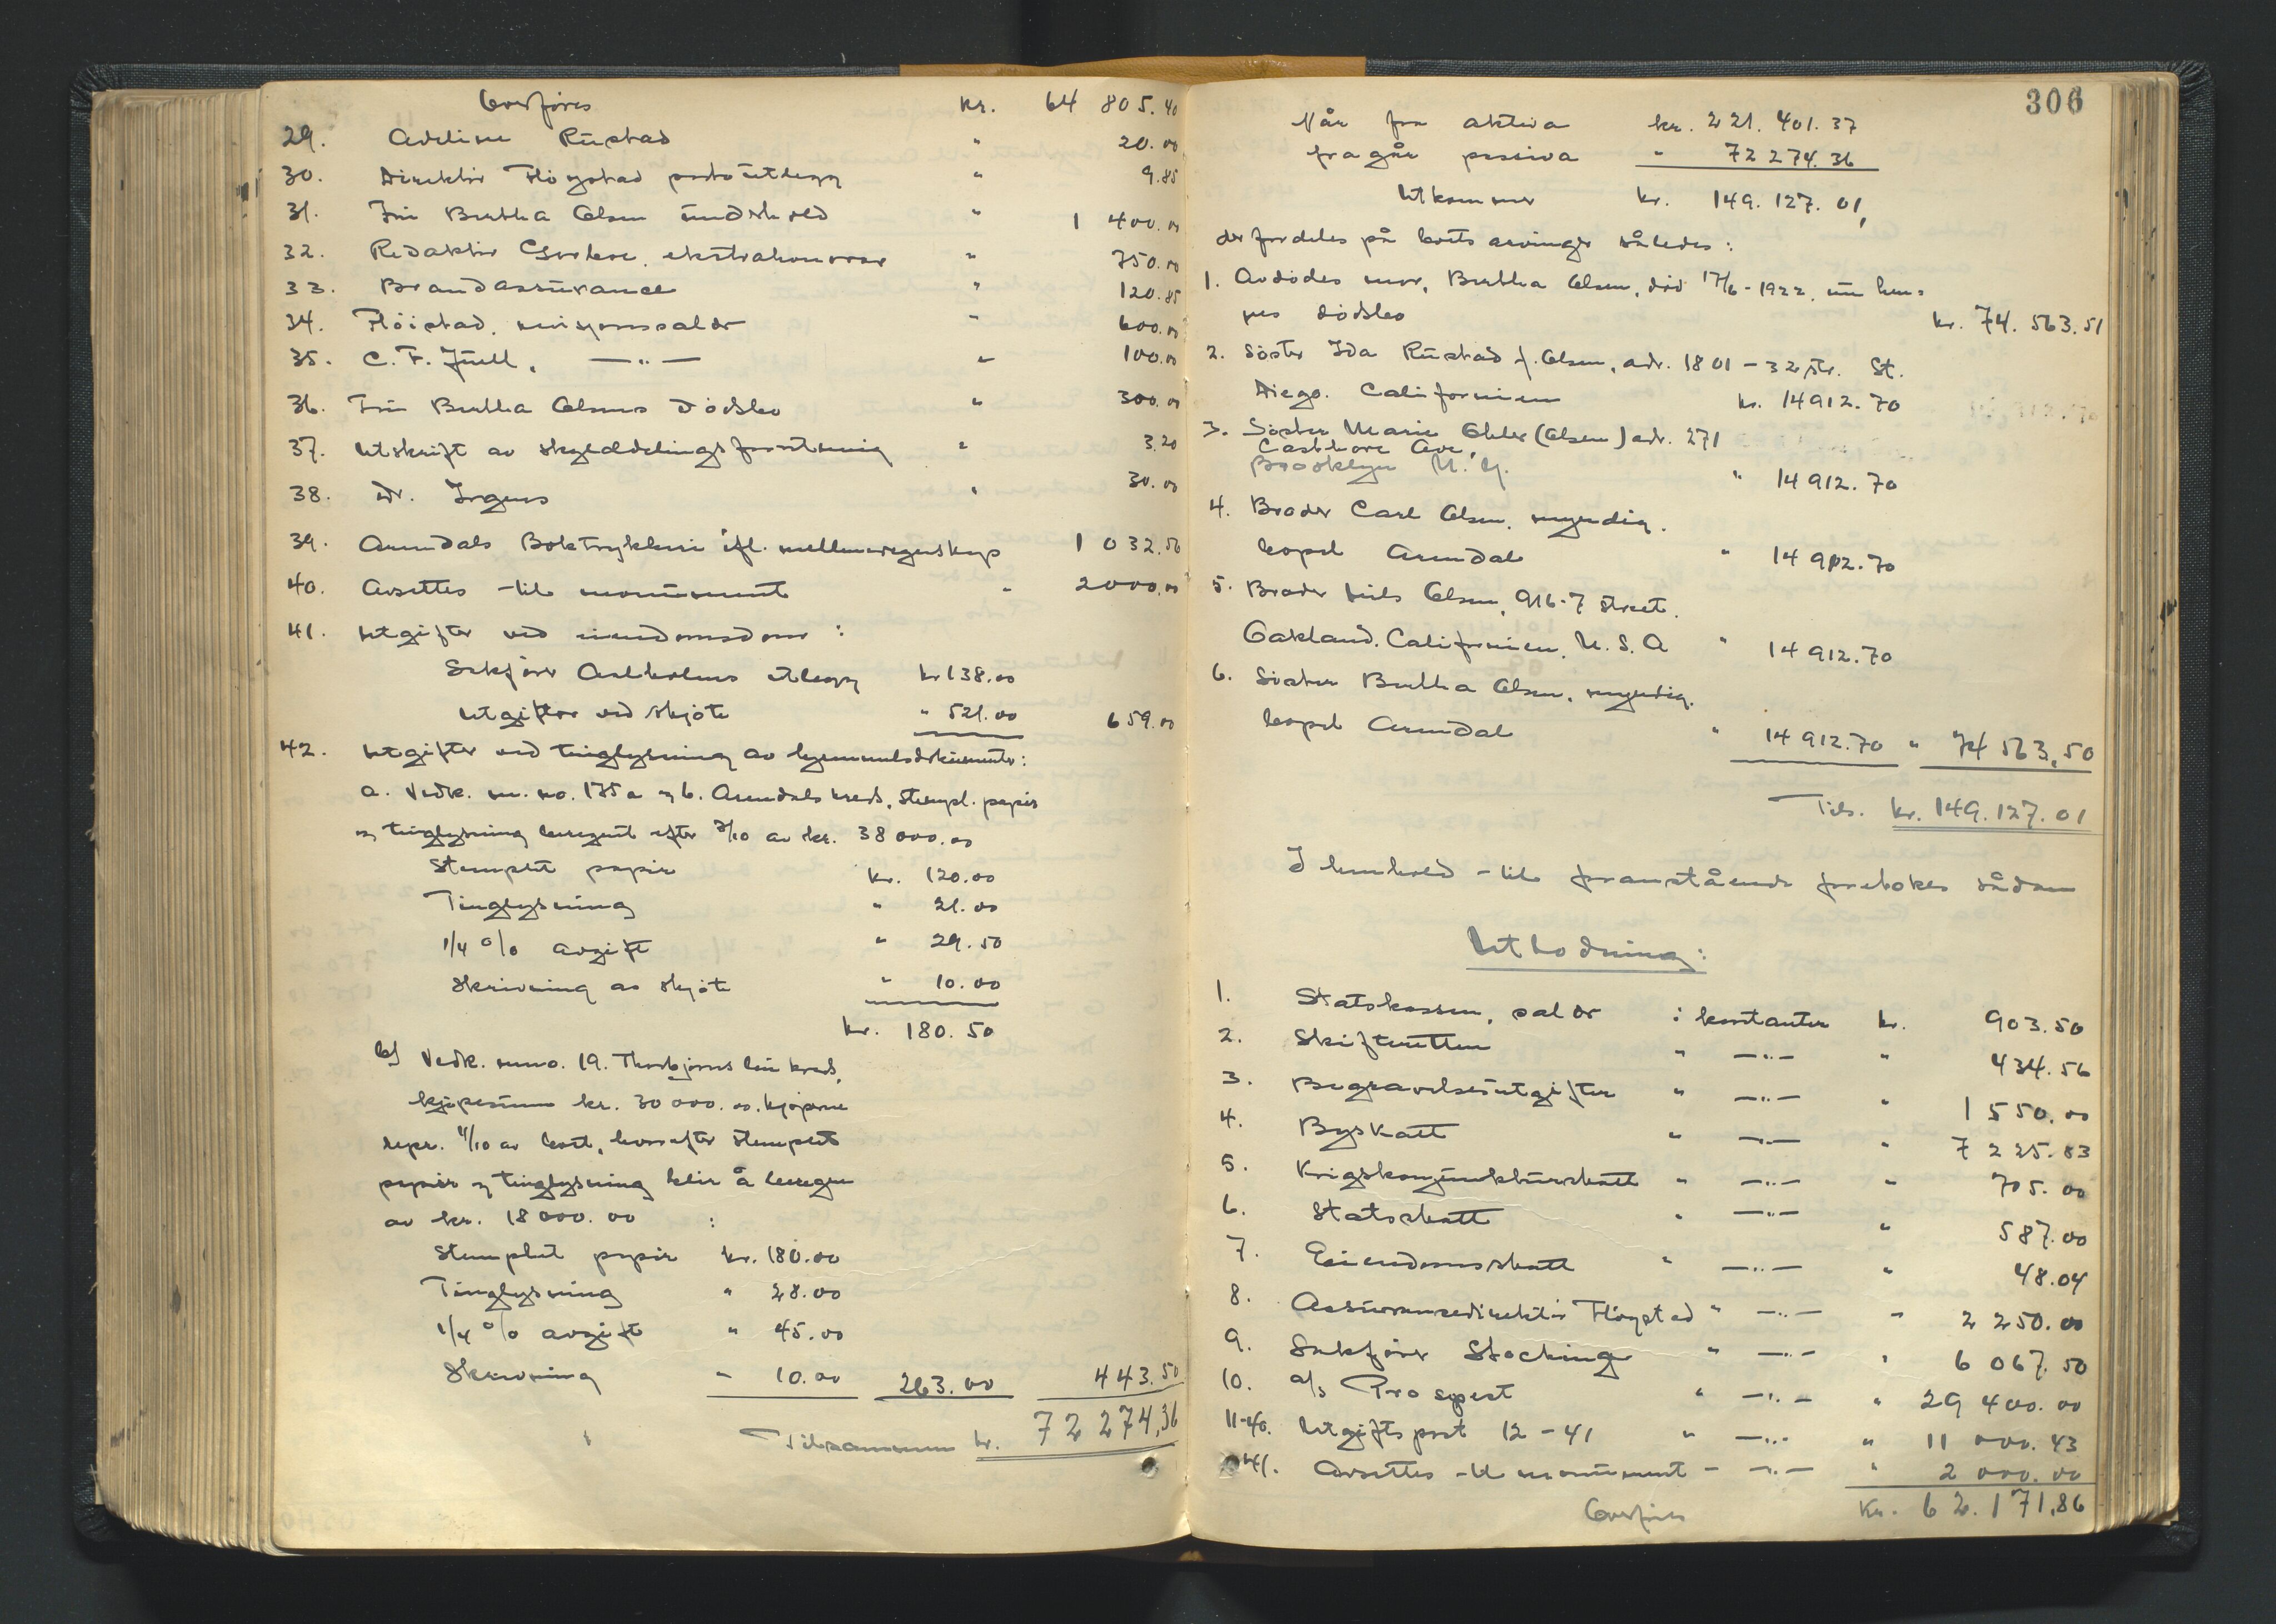 Overføres kr. 64 805.40
29. Adeline Rustad " 20.00
30. Direktør Fløystad portoutlegg " 9.85
31. Fru Bertha Olsen underhold " 1 400.00
32. Redaktør ekstrahonorar " 750.00
33. Brandassurance " 120.85
34. Fløistad, revisjonssalær " 600.00
35. C. F. Juell, —"— " 100.00
36. Fru Bertha Olsens dødsbo " 300.00
37. Utskrift av skylddelingsforretning " 3.20
38. Dr. Irgens " 30.00
39. Arendals Boktrykkeri ifl. mellemregnskap 1 032.56
40. Avsettes til monument " 2000.00
41. Utgifter ved eiendomsdom :
Sakfører Aalholms utlegg kr 138.00
Utgifter ved skjøte " 521.00 659.00
42. Utgifter ved tinglysning av hjemmelsdokumenter:
a. Vedk. m. no. 175a og b. Arendals kreds, stempl. papir
og tinglysning beregnet efter 3/10 av kr. 38 000.00
Stemplet papir kr. 120.00
Tinglysning " 21.00
1/4 % avgift " 29.50
Skrivning av skjøte " 10.00
kr. 180.50
b) Vedk. m.no. 19. Thorbjørnsbu kreds,
kjøpesum kr. 30 000.00. kjøperne
repr. 4/10 av boet, hvorefter stemplet
papir og tinglysning blir å beregne
av kr. 18 000.00 :
Stemplet papir kr. 180.00
Tinglysning " 28.00
1/4 % avgift " 45.00
Skrivning " 10.00 263.00 443.50
Tilsammen kr. 72 274,36
306
Når fra aktiva kr. 221.401.37
fragår passiva " 72 274.36
Utkommer kr. 149.127.01,
der fordeles på boets arvinger således:
1. Avdødes mor, Bertha Olsen, død 17/6-1922, nu hen-
nes dødsbo kr. 74.563.51
2. Søster Ida Rustad f. Olsen, adr. 1801-32 str. St.
Diego. Californien kr. 14912.70
3. Søster Marie Ohler (Olsen) adr. 271
Ave,
Brooklyn N.Y. " 14 912.70
4. Broder Carl Olsen, myndig.
bopel Arendal " 14 912.70
5. Broder Nils Olsen, 916-7 Street.
Oakland. Californien, U.S.A " 14 912.70
6. Søster Bertha Olsen, myndig.
bopel Arendal " 14 912.70 " 74 563,50
Tils. kr. 149.127.01
I henhold til foranstående forebokes sådan
Utlodning:
1. Statskassen, salær i kontanter kr. 903.50
2. Skifteretten " —"— " 434.56
3. Begravelsesutgifter " —"— " 1 550.00
4. Byskatt " —"— " 7 225.83
5. Krigskonjunkturskatt " —"— " 705.00
6. Statsskatt " —"— " 587.00
7. Eiendomsskatt " —"— " 48.04
8. Assuransedirektør Fløystad " —"— " 2 250.00
9. Sakfører Stocking " —"— " 6 067.50
10. A/S Prospect " —"— " 29 400.00
11-40. Utgiftspost 12-41 " —"— " 11 000.43
41. Avsettes til monument " —"— " 2 000.00
Overføres kr. 62.171,86